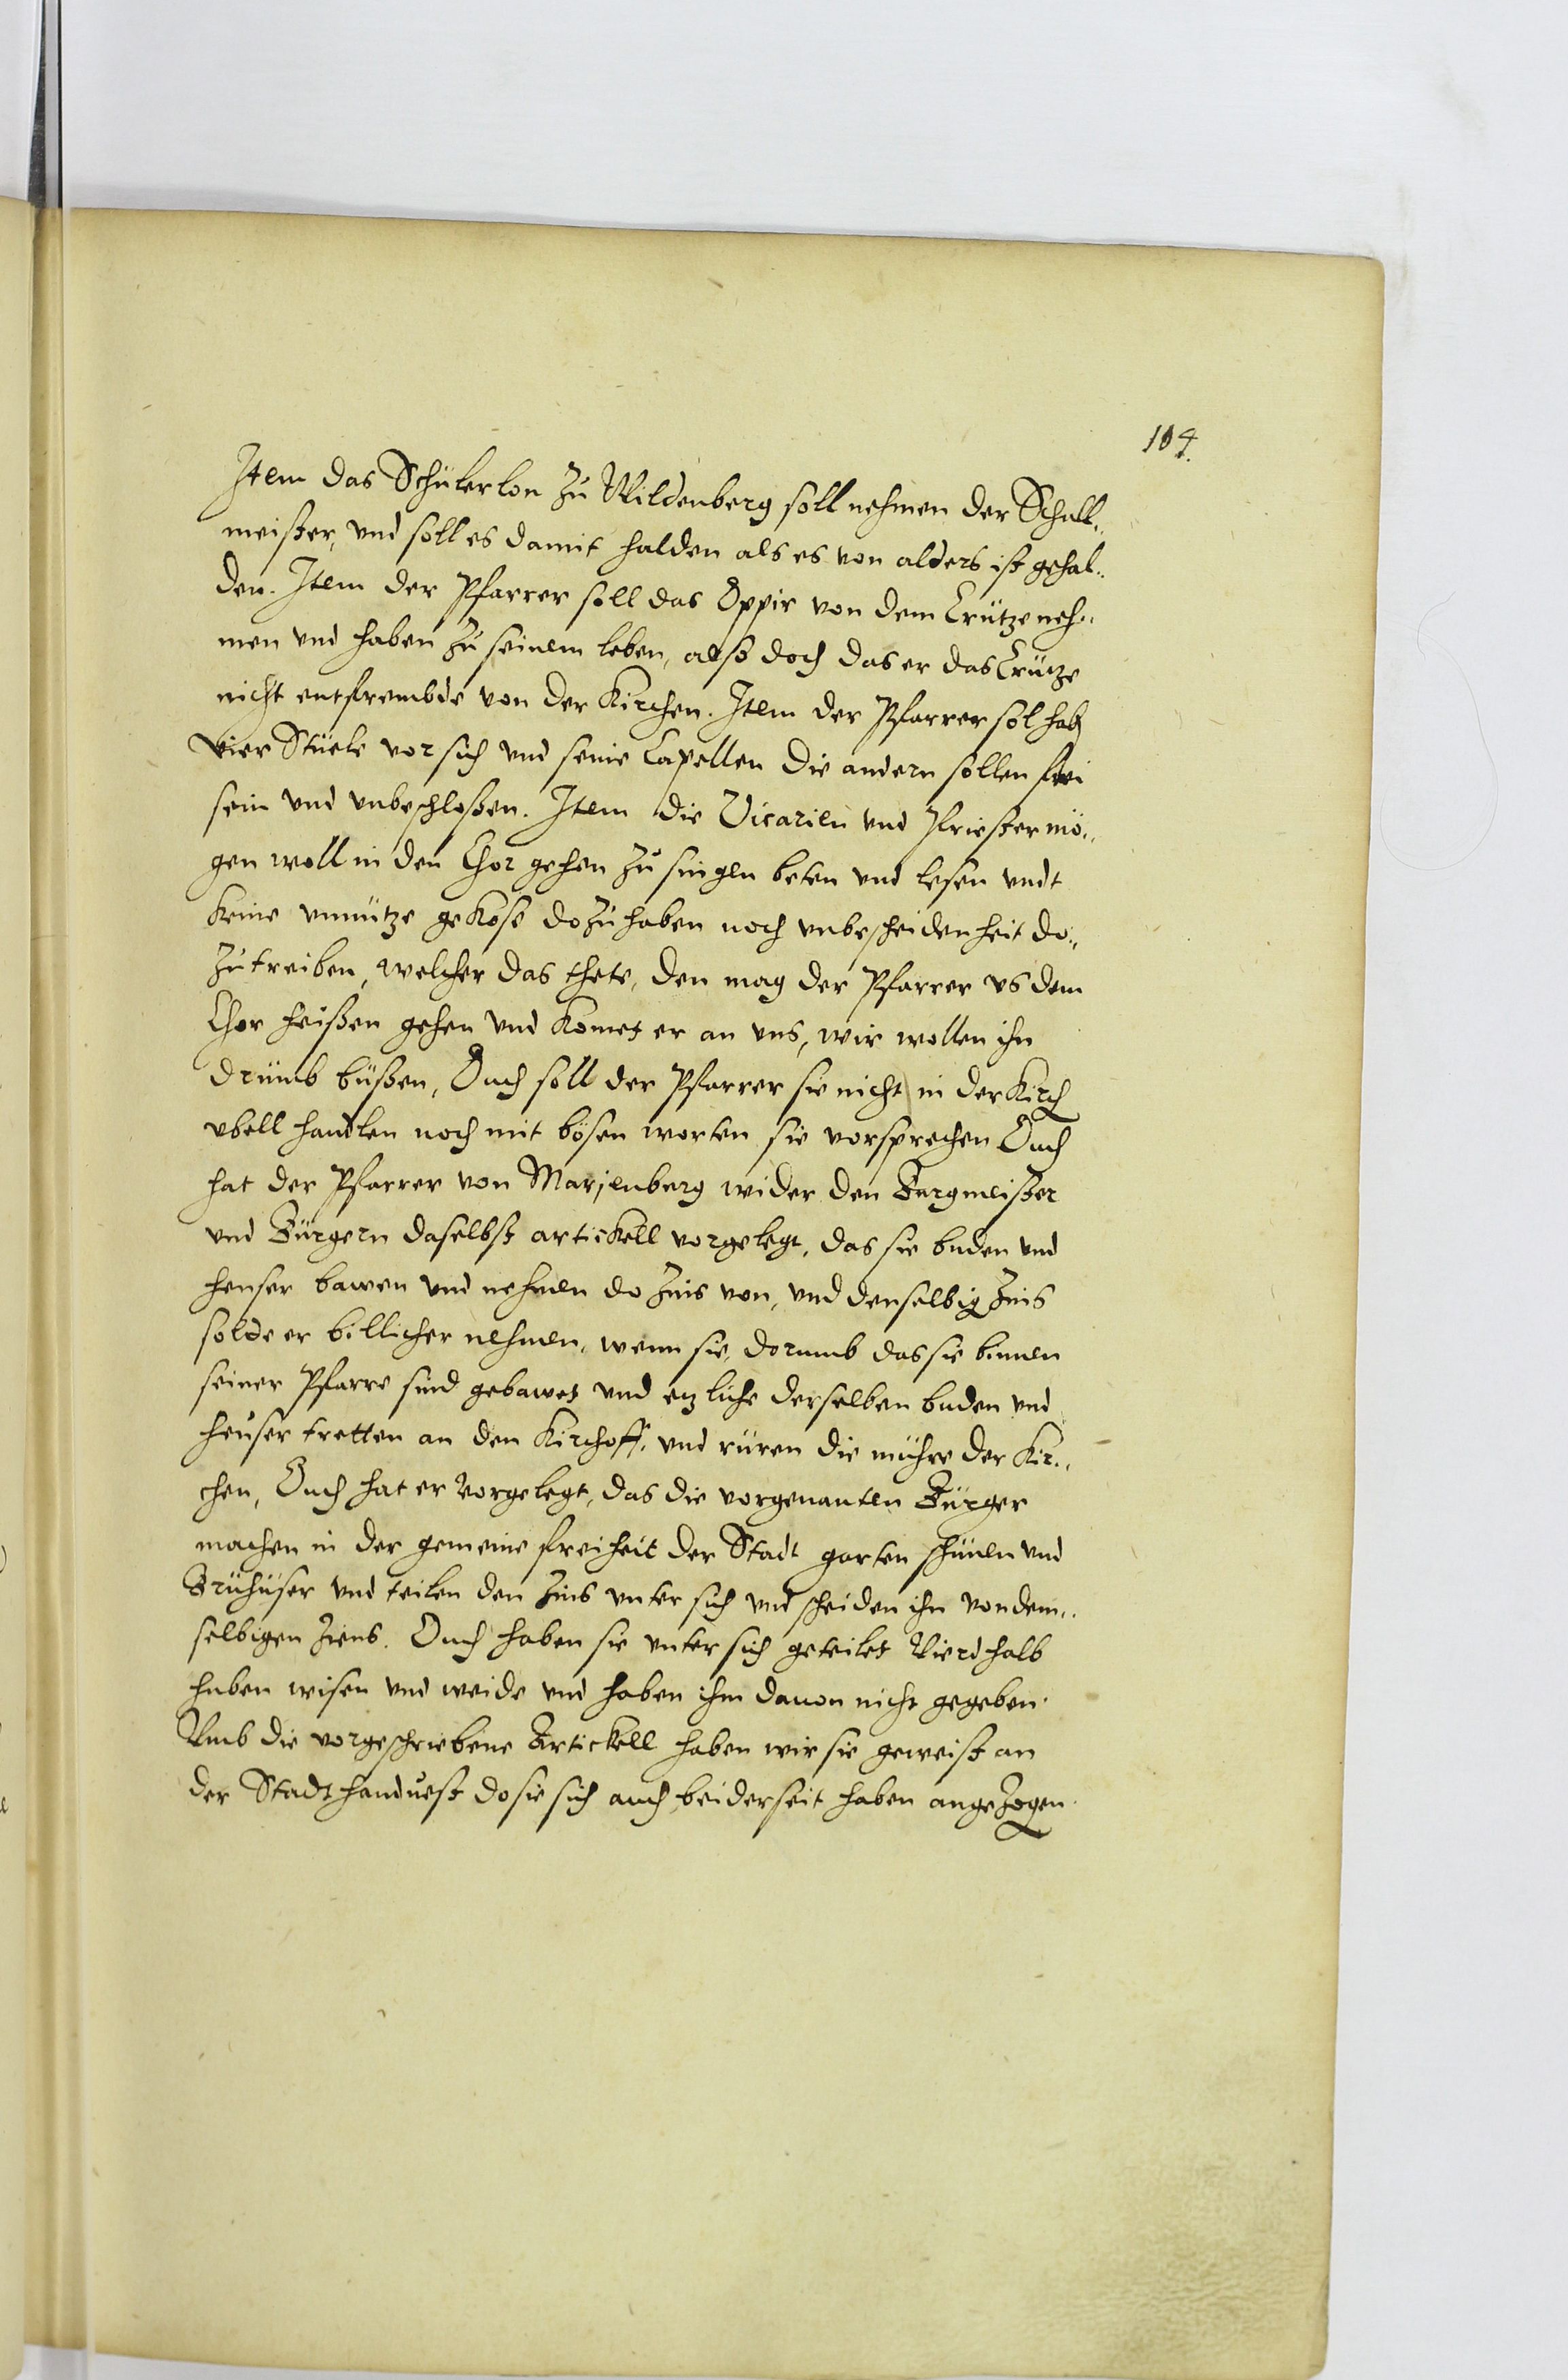 104.
Item das Schülerlon zu Wildenberg soll nehmen der Schull„
meister, vnd soll es damit halden als es von alders ist gehal„
den. Item der Pfarrer soll das Oppir von dem Crütze neh„
men vnd haben zu seinem leben, also doch das er das Crütze
nicht entfrembde von der Kirchen. Item der Pfarrer sol hab
vier Stüele vor sich vnd seine Capellen die andern sollen frei
sein vnd vnbeschloßen. Item die Vicarien vnd Priester mö„
gen woll in den Chor gehen zu singen beten vnd lesen vndt
keine vnnütze gekose do zu haben noch vnbescheidenheit do„
zu treiben, welcher das thete, den mag der Pfarrer vs dem
Chor heißen gehen vnd komet er an vns, wir wollen ihn
drümb büßen, Ouch soll der Pfarrer sie nicht in der Kirch
vbell handlen noch mit bösen worten sie vorsprechen Ouch
hat der Pfarrer von Marjenberg wider den Burgmeister
vnd Bürgern daselbst artickell vorgelegt, das sie buden vnd
heuser bawen vnd nehmen do Zins von, vnd denselbig Zins
solde er billicher nehmen, wenn sie, dorumb das sie binnen
seiner Pfarre sind gebawet vnd etzliche derselben buden vnd
heuser tretten an den Kirchoff, vnd rüren die mühre der Kir„
chen, Ouch hat er vorgelegt, das die vorgenanten Bürger
machen in der gemeine freiheit der Stadt garten schünen vnd
Brühüser vnd teilen den Zins vnter sich vnd scheiden ihn von dem„
selbigen Ziens. Ouch haben sie vnter sich geteilet Vierdhalb
huben wisen vnd weide vnd haben ihm dauon nicht gegeben.
Vmb die vorgeschriebene Artickell haben wir sie geweist an
der Stadt handuest do sie sich auch beiderseit haben angezogen.